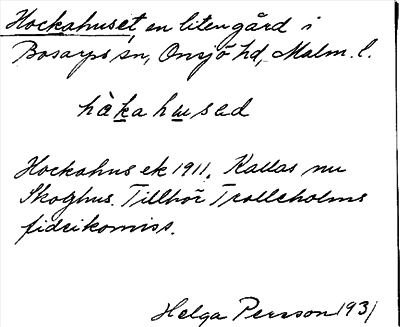 Hockahuset, en liten gård i
Bosarps sn, Onsjö hd, Malm. l.
hàkahusad
Hockahus ek 1911. Kallas nu
Skoghus. Tillhör Trolleholms
fideikomiss.
Helga Persson 1931